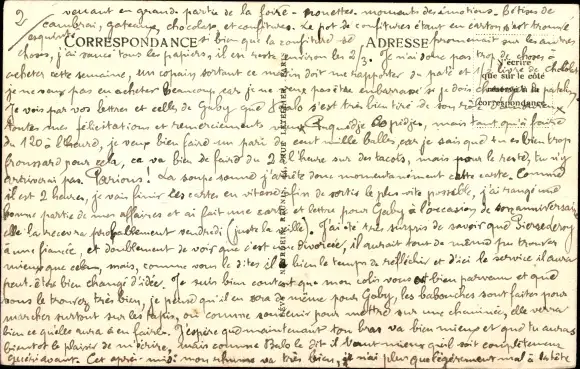 2 venant en grande partie de la foire - nouettes. moments des émotions. Bêtises de
cambrai, gateaux, chocolats et confitures. Le pot de confitures étant en carton s'est trouvé
esquinté si bien que la confiture se promenait sur les autres
CORRESPONDANCE
ADRESSE
choses, j'ai sauvé tous les papiers, il en reste environ les 2/3. Je n'ai donc pas trop de choses à
écrire
acheter cette semaine, un copain sortant ce matin doit me rapporter du paté et 1 livre de chocolat
que sur le côté
je ne veux pas en acheter beaucoup car je ne veux pas être embarrassé si je dois
correspondance
Je vois par vos lettres et celles de Gaby que Balo s'est très bien tiré de son
toutes mes félicitations et remerciements vieux mais tant qu'à faire
du 120 à l'heure, je veux bien faire un pari de cent mille balles car je sais que tu es bien trop
froussard pour cela, ce va bien de faire du 2 à l'heure sur des tacots, mais pour le reste, tu n'y
arriverais pas. Parions! La soupe sonne j'arrête donc momentanément cette carte. Comme
il est 2 heures, je vais finir les cartes en vitesse afin de sortir le plus vite possible, j'ai rangé une
bonne partie de mes affaires et ai fait une carte et lettre pour Gaby à l'occasion de son anniversaire
elle la recevra probablement vendredi (juste la veille). J'ai été très surpris de savoir que
à une fiancée, et doublement de voir que c'est une divorcée, il aurait tout de même pu trouver
mieux que cela, mais, comme vous le dites, il a bien le temps de réfléchir et d'ici le service il aura
peut-être bien changé d'idée. Je suis bien content que mon colis vous est bien parvenu et que
vous le trouvez très bien, je pense qu'il en sera de même pour Gaby, les babouches sont faites pour
marcher surtout sur les tapis, ou comme souvenir pour mettre sur une cheminée, elle verra
bien ce qu'elle aura à en faire. J'espère que maintenant ton bras va bien mieux et que tu auras
bientôt le plaisir de m'écrire, mais comme Balo le dit il vaut mieux qu'il soit complètement
guéri avant. Cet après-midi mon rhume va très bien, je n'ai plus que légèrement mal à la tête